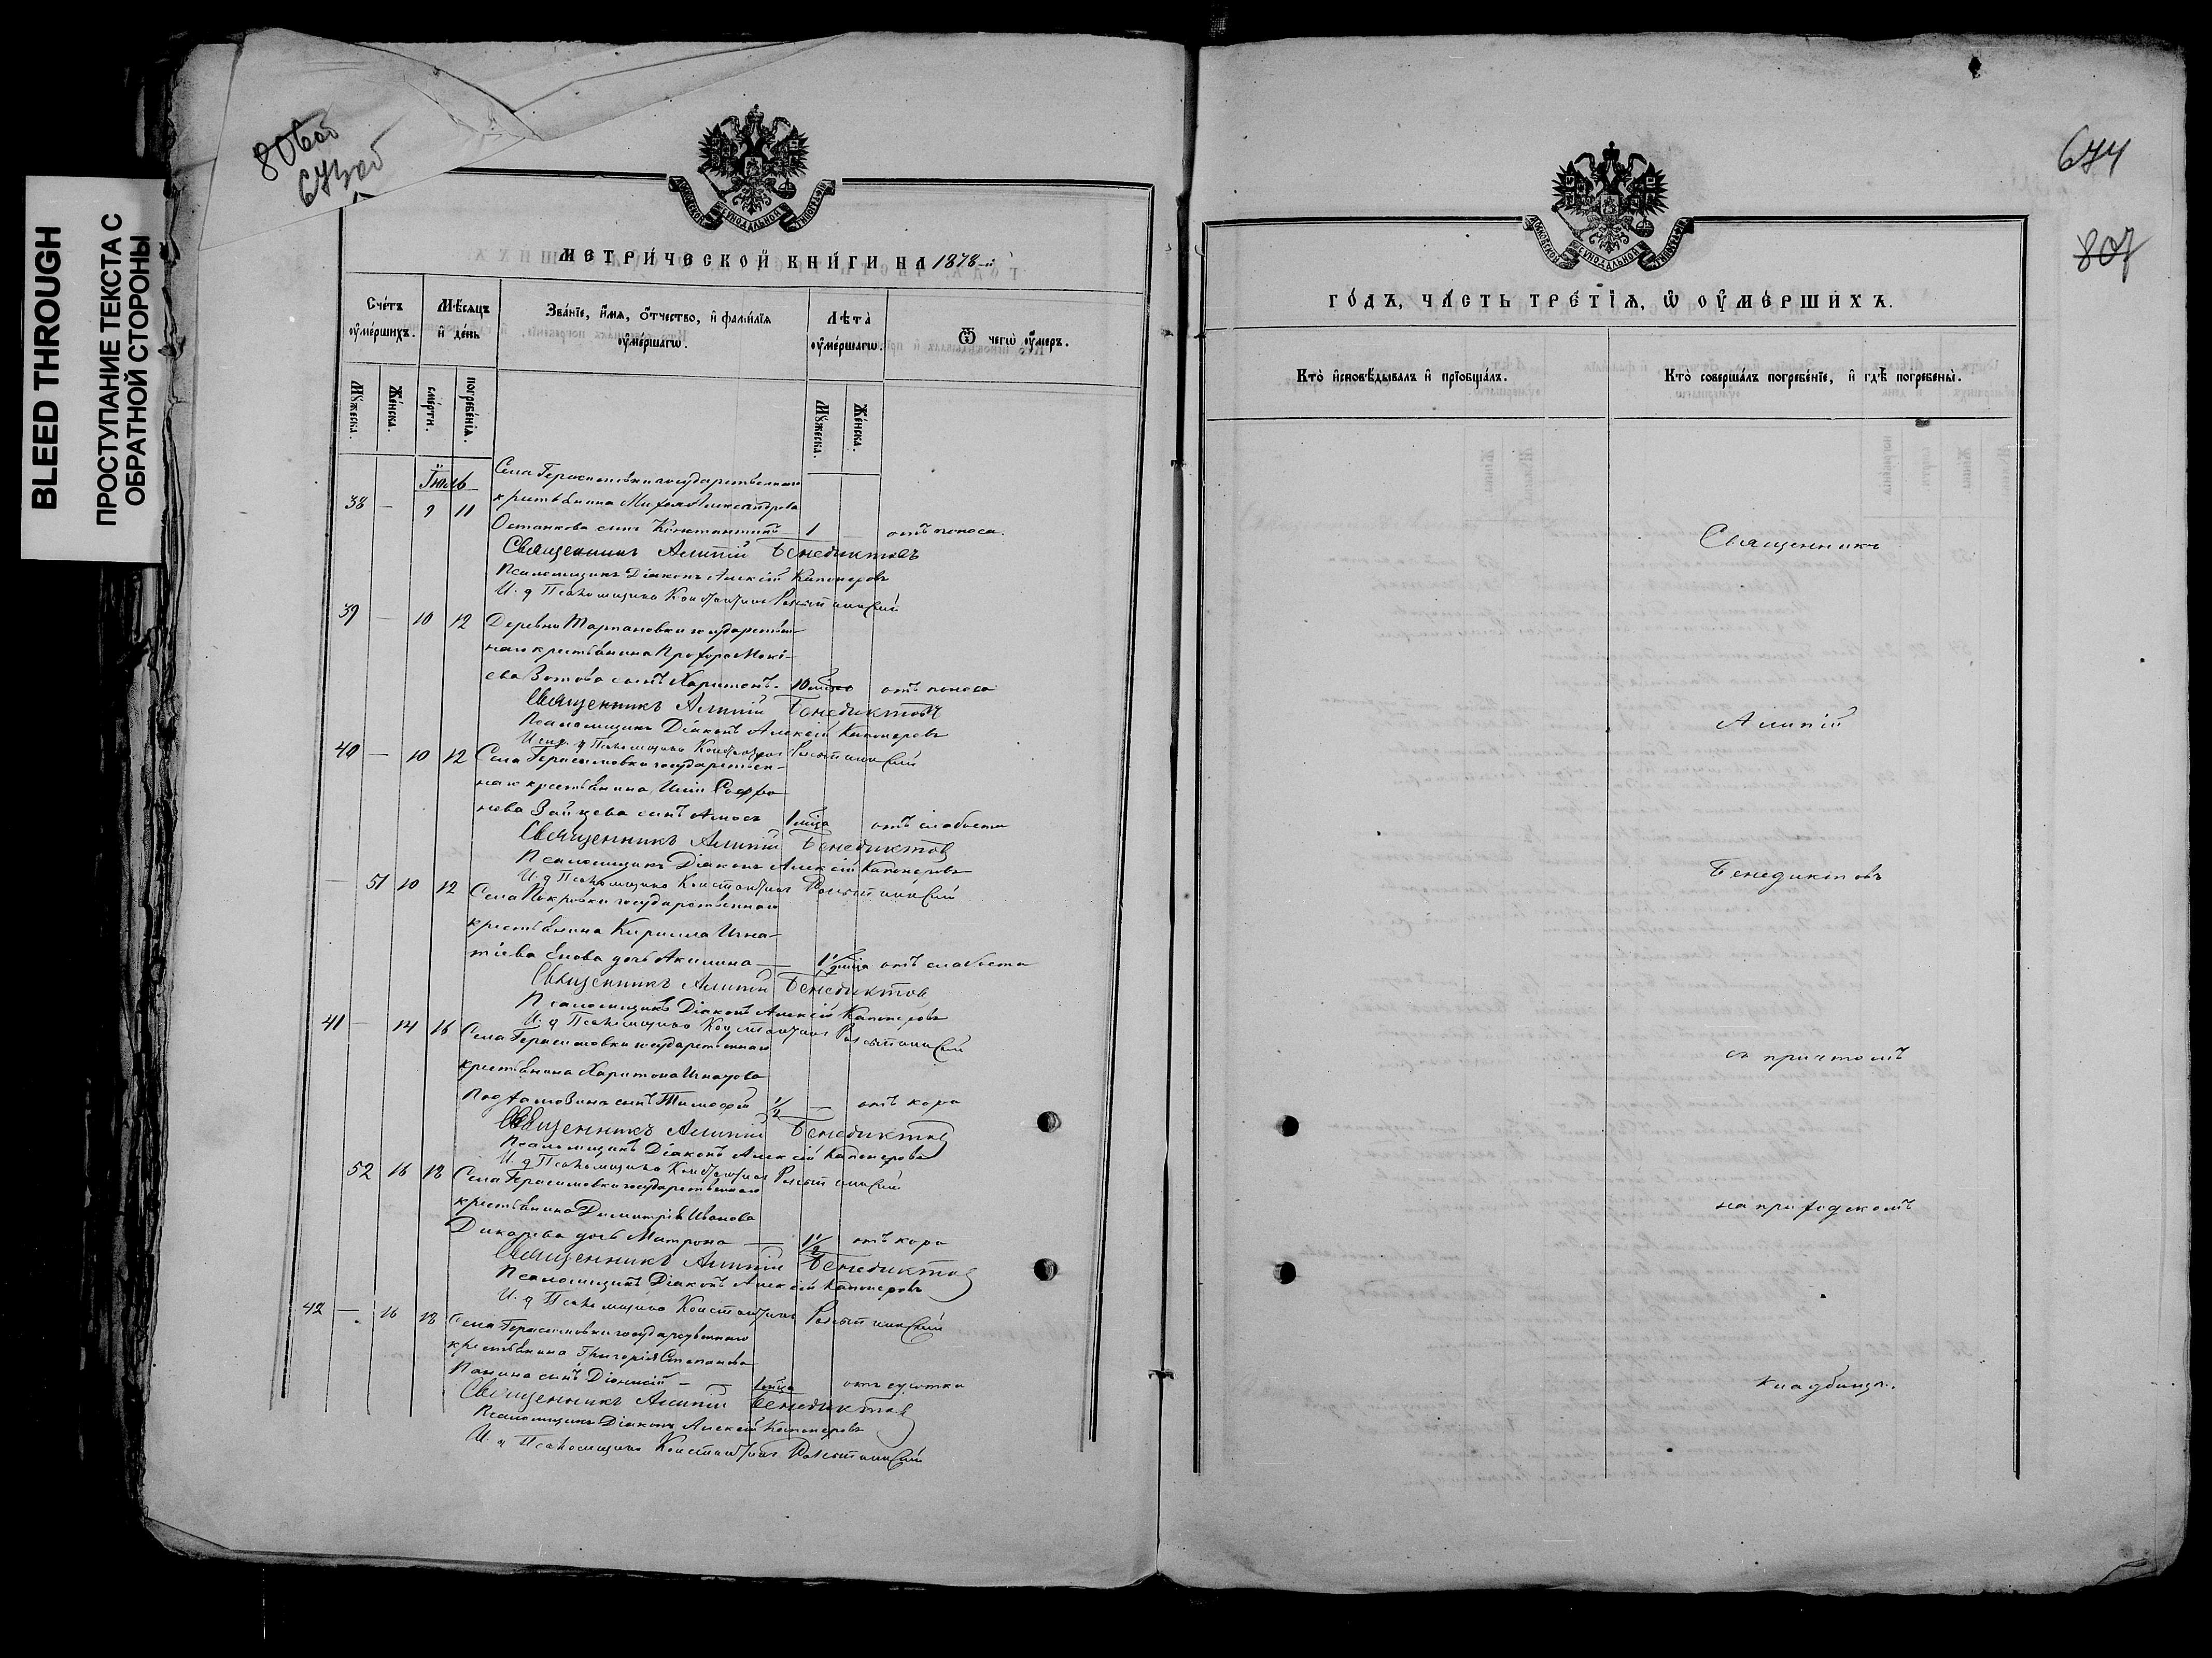 BLEED THROUGH
ПРОСТУПАНИЕ ТЕКСТА С
ОБРАТНОЙ СТОРОНЫ
806об
673об
МЕТРИ́ЧЕСКОЙ КНИ́ГИ НА 1878-й
Сче́тъ ᲂу҆ме́ршихъ.
Мѣ́сяцъ и҆ де́нь
Зва́нїе, и҆́мѧ, ѻ҆́тчество, и҆ фами́лїѧ ᲂу҆ме́ршагѡ.
Лѣ́та ᲂу҆ме́ршагѡ.
Ѿ чегѡ̀ ᲂу҆́меръ.
Мꙋ́жеска.
Же́нска.
сме́рти.
погребе́нїѧ.
Мꙋ́жеска.
Же́нска.
Іюль
Села Герасимовки государственнаго
38 — 9 11 крестьянина Александрова
Останкова сынъ Константинъ 1 отъ поноса.
Священникъ Алипій Бенедиктовъ
Псаломщикъ Діаконъ Алексій Капонеровъ
И. д Псаломщика Константинъ
39 — 10 12 Деревни государствен-
наго крестьянина Прохора Моке-
ева Зотова сынъ Харитонъ. 10 мцъ отъ поноса
Священникъ Алипій Бенедиктовъ
Псаломщикъ Діаконъ Алексій Капонеровъ
Псаломщика Константинъ
40 — 10 12 Села Герасимовки государствен-
наго крестьянина Софро
нова Зайцева сынъ Амосъ 1 мца отъ слабости
Священникъ Алипій Бенедиктов
Псаломщикъ Діаконъ Алексій Капонеровъ
И. д Псаломщика Константинъ
— 51 10 12 Села Покровки государственнаго
крестьянина Кирилла Игна-
тіева Енова дочь Акилина — 1 1/2 мца отъ слабости
Священникъ Алипій Бенедиктов
Псаломщикъ Діаконъ Алексій Капонеровъ
И. д Псаломщика Константинъ
41 — 14 16 Села Герасимовки государственнаго
крестьянина Харитона Игнатова
сынъ Тимофей 1/2 — отъ кора
Священникъ Алипій Бенедиктов
Псаломщикъ Діаконъ Алексій Капонеровъ
И. д Псаломщика Константинъ
52 16 18 Села Герасимовки государственнаго
крестьянина Димитрія Иванова
Дикарева дочь Матрона — 1 1/2 отъ кора
Священникъ Алипій Бенедиктов
Псаломщикъ Діаконъ Алексій Капонеровъ
И. д Псаломщика Константинъ
42 — 16 18 Села Герасимовки государственнаго
крестьянина Григорія Степанова
Панина сынъ Діонисій — 1 мца отъ сушотки
Священникъ Алипій Бенедиктов
Псаломщикъ Діаконъ Алексій Капонеровъ
И. д Псаломщика Константинъ
674
807
ГО́ДЪ, ЧА́СТЬ ТРЕ́ТЇѦ, Ѡ҆ ОУ҆МЕ́РШИХЪ.
Кто̀ и҆сповѣ́дывалъ и҆ прїобща́лъ.
Кто̀ соверша́лъ погребе́нїе, и҆ гдѣ̀ погребены̀.
Священникъ
Алипій
Бенедиктовъ
съ причтомъ
на приходскомъ
кладбищѣ.